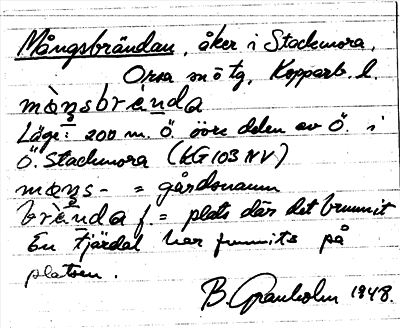 Mångsbrändan, åker i Stackmora,
Orsa sn ö tg, Kopparb. l.
mɑ̀ŋsbrɛ̀nda
Läge: 200 m. Ö. övre delen av Ö. i
Ö. Stackmora (KG103 NV)
mɑŋs- = gårdsnamn
brɛ̀nda f. = plats där det brunnit
En tjärdal har funnits på
platsen.
B. Granholm 1948.